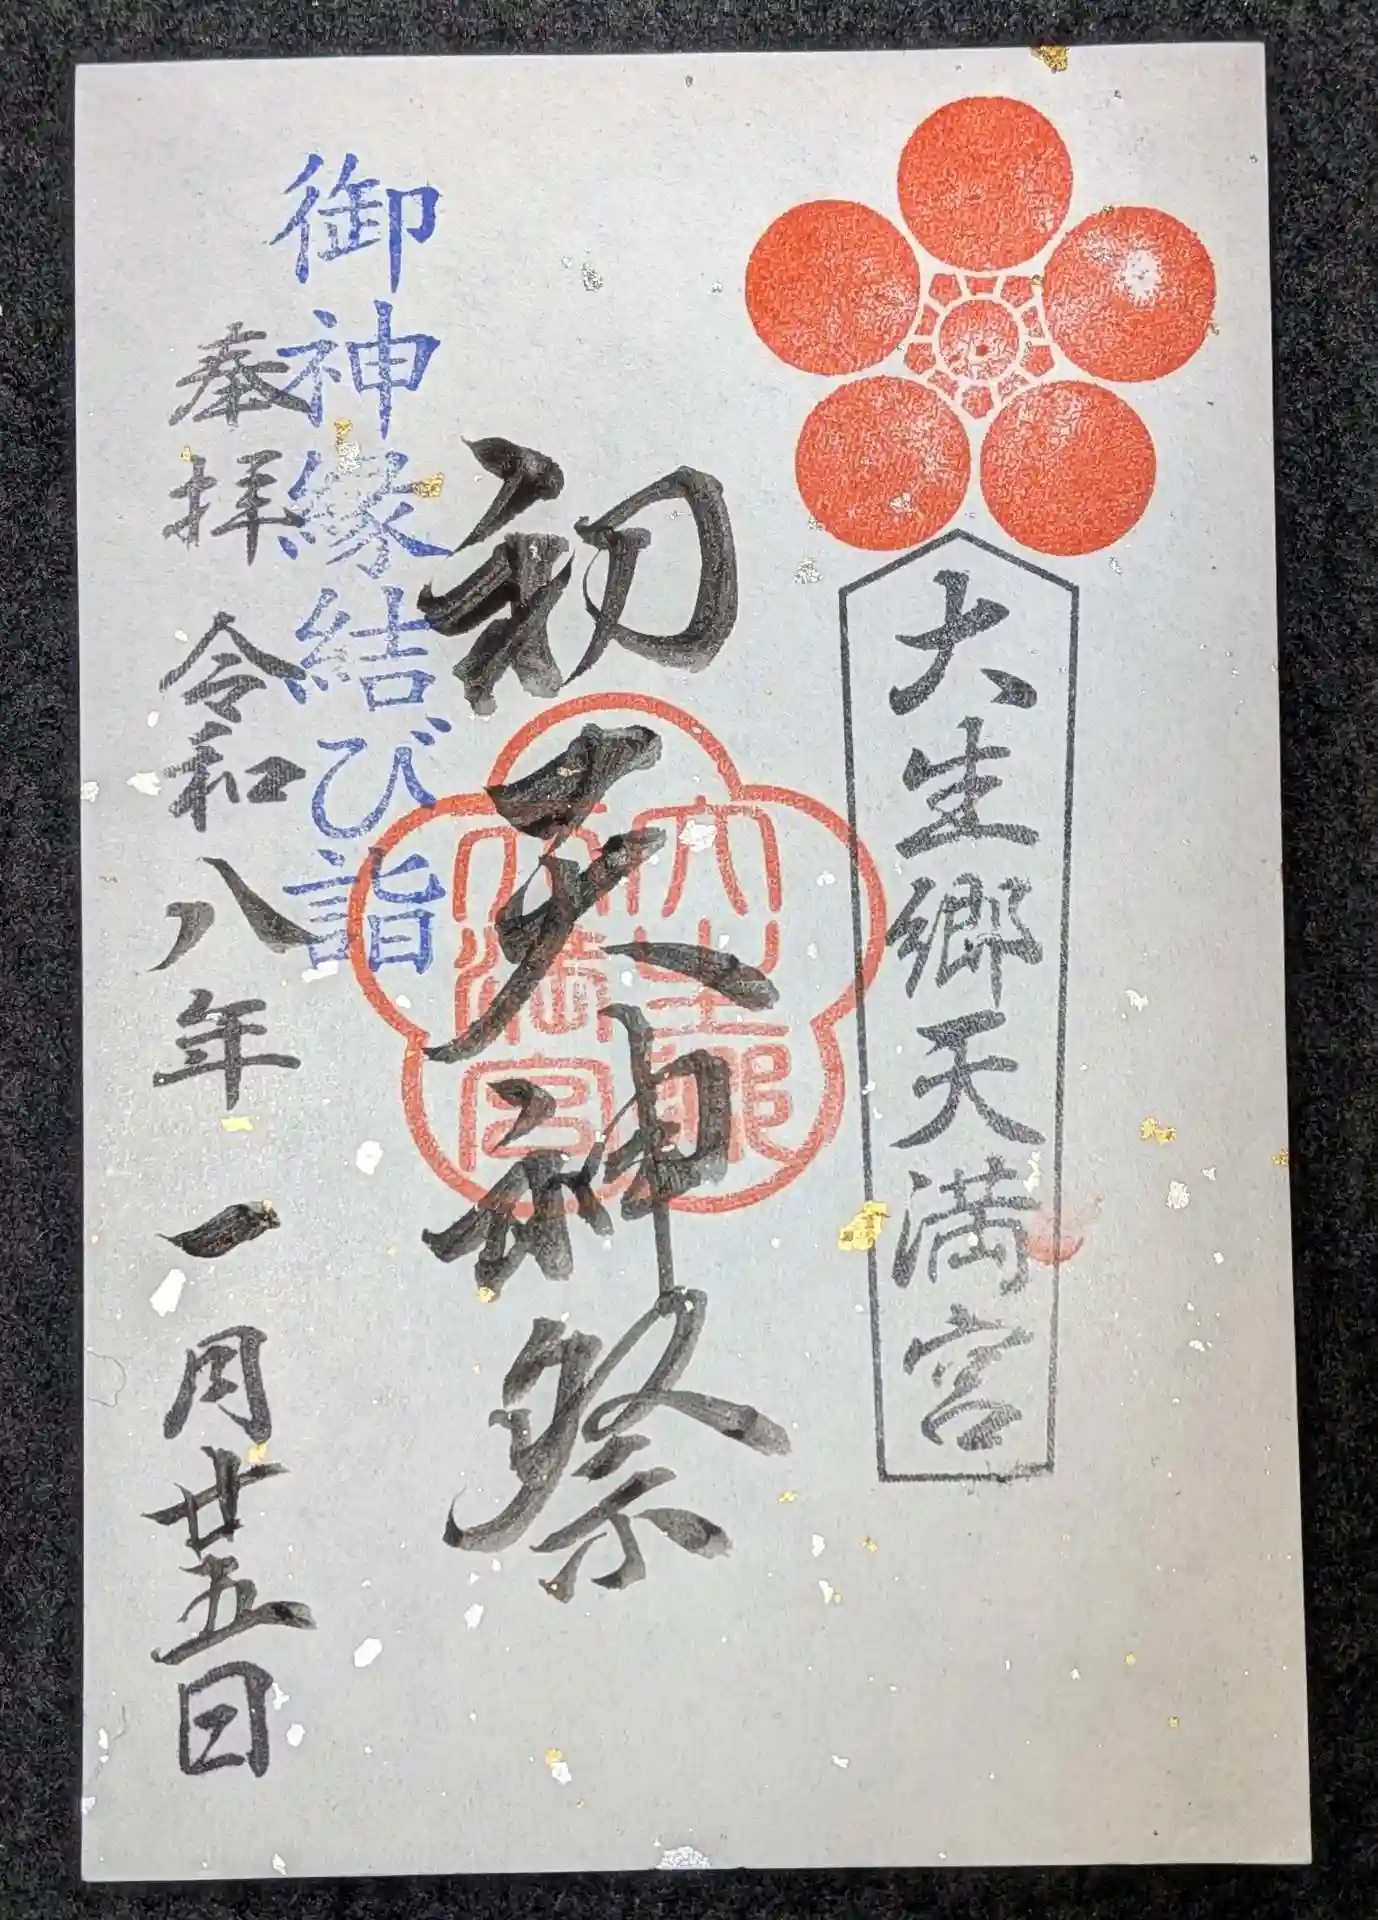 大生郷天満宮
初天神祭
大生郷
天満宮
御神縁結び詣
奉拝 令和八年 一月廿五日